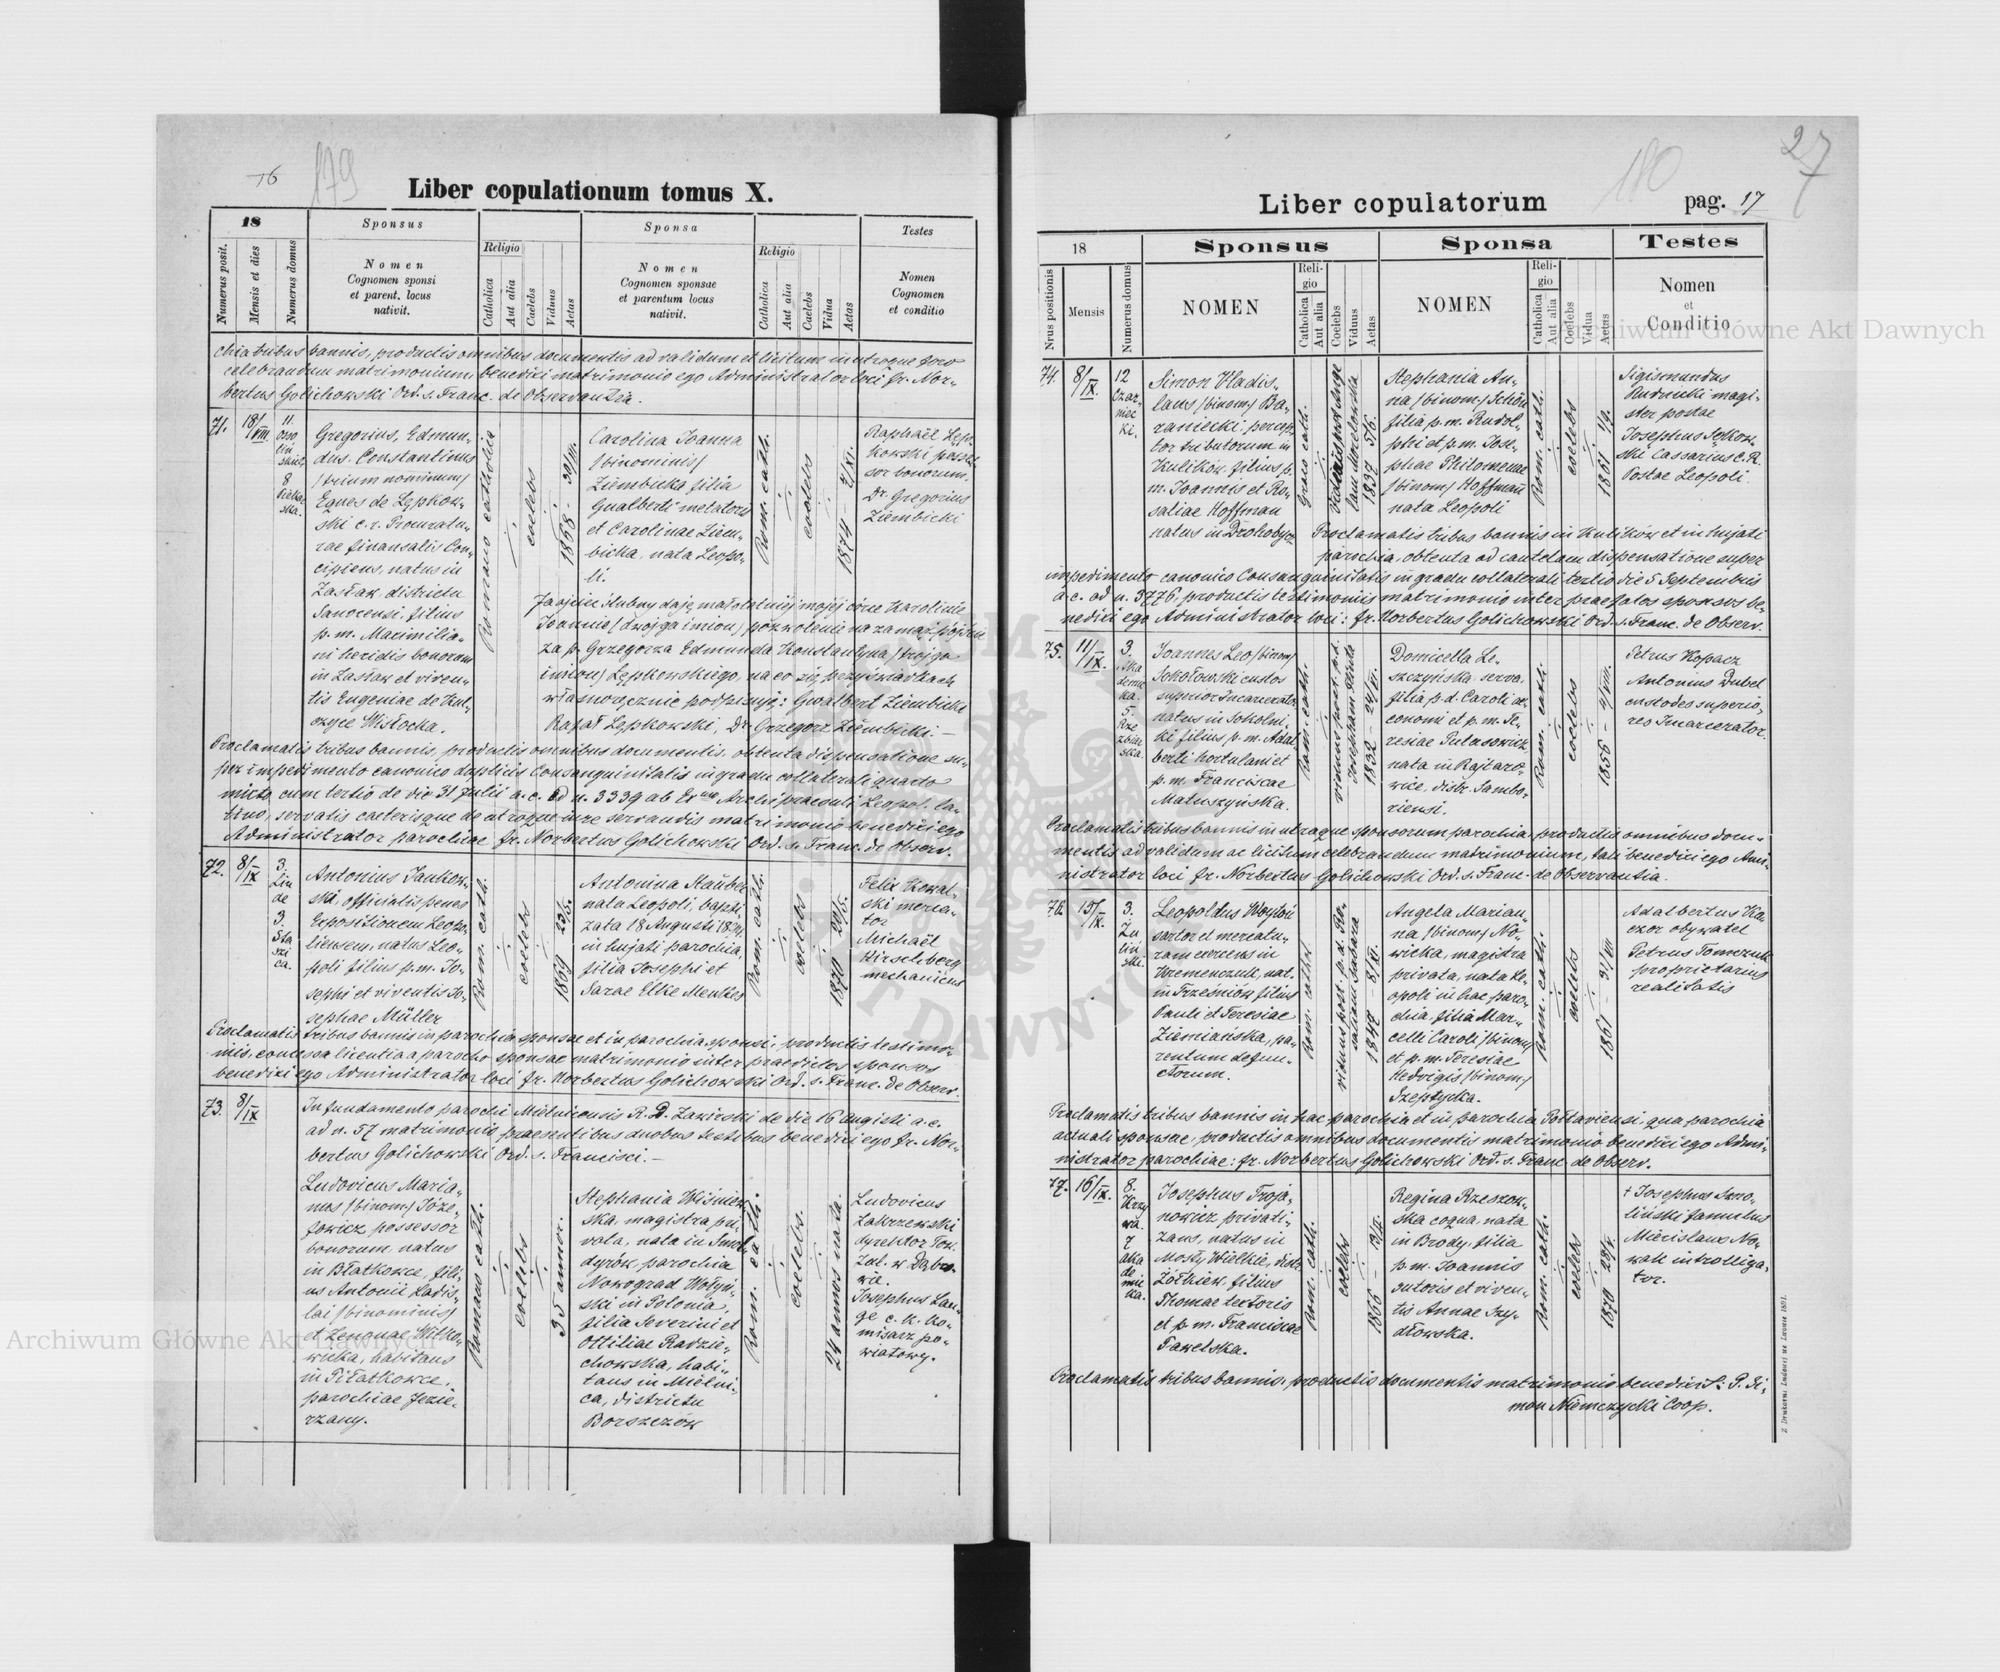 16
179
Liber copulationum tomus X.
18
Sponsus
Sponsa
Testes
Numerus posit.
Mensis et dies
Numerus domus
Nomen
Cognomen sponsi
et parent. locus
nativit.
Religio
Catholica
Aut alia
Caelebs
Viduus
Aetas
Nomen
Cognomen sponsae
et parentum locus
nativit.
Religio
Catholica
Aut alia
Caelebs
Vidua
Aetas
Nomen
Cognomen
et conditio
chia tribus bannis, productis omnibus documentis ad validum et licitum in utroque foro
celebrandum matrimonium, benedixi matrimonio ego Administrator loci fr. Nor-
bertus Golichowski Ord. s. Franc. de Observantia.
71.
18/VIII.
11.
Osso
liń
skich
8
Gregorius, Edmun-
dus. Constantinus
/trium nominum/
Eques de Lępkow-
ski c. r. Procuratu-
rae finansalis Con-
cipiens, natus in
Zasław districtu
Sanocensi, filius
p. m. Maximilia-
ni heridis bonorum
in Zasław et viven-
tis Eugeniae de Hul-
Wisłocka.
Romano catholica
coelebs
1868 - 30/III.
Carolina Joanna
/binominis/
Ziembicka filia
Gualberti metatoris
et Carolinae Ziem-
bicka, nata Leopo-
li.
Rom. cath.
coelebs
1874 - 2/XI.
Raphaël Lęp-
kowski posses-
sor bonorum.
Dr. Gregorius
Ziembicki
Ja ojciec ślubny daję małoletniéj mojéj córce Karolinie
Joannie /dwojga imion/ pozwolenie na zamąż pójście
za p. Grzegorza Edmunda Konstantyna /trojga
imion/ Lępkowskiego, na co się przy świadkach
własnoręcznie podpisuję: Gwalbert Ziembicki
Rafał Lępkowski, Dr Grzegorz Ziembicki. —
Proclamatis tribus bannis, productis omnibus documentis, obtenta dispensatione su-
per impedimento canonico duplicis Consanguinitatis in gradu collaterali quarto
mixto cum tertio de die 31 Julii a. c. ad n. 3339 ab Archipraesuli Leopol. la-
tino, servatis caeterisque de utroque iure servandis matrimonio benedixi ego
Administrator parochiae fr. Norbertus Golichowski Ord. s. Franc. de Observ.
72.
8/IX
3.
Lin
de
3
Sta
szi
ca.
Antonius Jankow-
ski, officialis penes
Expositionem Leopo-
liensem, natus Leo-
poli filius p. m. Jo-
sephi et viventis Jo-
sephae Müller
Rom. cath.
coelebs
1869 23/5.
Antonina Stauber
nata Leopoli, bapti-
zata 18 Augusti
in hujati parochia,
filia Josephi et
Sarae Elke Mentkes
Rom. cath.
coelebs
1870 20/5.
Felix Kowal-
ski merca-
tor
Michaël
Hirschberg
mechanicus
Proclamatis tribus bannis in parochia sponsae et in parochia sponsi, productis testimo-
niis, concessa licentia a parocho sponsae matrimonio inter praedictos sponsos
benedixi ego Administrator loci fr. Norbertus Golichowski Ord. s. Franc. de Observ.
73.
8/IX
In fundamento parochi Mielnicensis R. D. Zawirski de die 16 Augusti a. c.
ad n. 57 matrimonio praesentibus duobus testibus benedixi ego fr. Nor-
bertus Golichowski Ord. s. Francisci. —
Ludovicus Maria-
nus /binom/ Józe-
fowicz possessor
bonorum natus
in Błatkowce, fili-
us Antonii Ladis-
lai /binominis/
et Zenonae Witko-
wicka, habitans
in Piłatkowce,
parochiae Jezie-
rzany.
Romano cath.
coelebs
35 annor.
Stephania Wiśniew-
ska, magistra pri-
vata, nata in Smol-
dyrów, parochia
Nowograd Wołyń-
ski in Polonia,
filia Severini et
Ottiliae Radzie-
chowska, habi-
tans in Mielni-
ca, districtu
Borszczów
Rom. cath.
coelebs.
24 annos nata.
Ludovicus
Zakrzewski
dyrektor Tow.
Zal. w Dąbro-
wie.
Josephus Lan-
ge c. k. ko-
misarz po-
wiatowy.
27
180
Liber copulatorum
pag. 17
18
Sponsus
Sponsa
Testes
Nrus positionis
Mensis
Numerus domus
NOMEN
Reli-
gio
Catholica
Aut alia
Coelebs
Viduus
Aetas
NOMEN
Reli-
gio
Catholica
Aut alia
Coelebs
Vidua
Aetas
Nomen
et
Conditio
74.
8/IX.
12
Czar-
niec
ki.
Simon Vladis-
laus /binom/ Ba-
raniecki, percep-
tor tributorum in
Kulików filius p.
m. Joannis et Ro-
saliae Hoffman
natus in Drohobycz
Graeco cath.
1837 5/6.
Stephania An-
na /binom/ Schön
filia p. m. Rudol-
phi et p. m. Jose-
phae Philomenae
/binom/ Hoffman
nata Leopoli
Rom. cath.
coelebs
1861
Sigismundus
Rudnicki magi-
ster postae
Josephus
ski Cassarius C. R.
Postae Leopoli.
Proclamatis tribus bannis in Kulików et in hujati
parochia, obtenta ad cautelam dispensatione super
impedimento canonico Consanguinitatis in gradu collaterali tertio die 5 Septembris
a. c. ad n. 3776, productis testimoniis matrimonio inter praefatos sponsos be-
nedixi ego Administrator loci: fr. Norbertus Golichowski Ord. s. Franc. de Observ.
75.
11/IX.
3.
Aka
demic
ka.
5.
Rze
źbiar
ska.
Joannes Leo /binom/
Sokołowski custos
superior Incarcerator.
natus in Sokolni-
ki filius p. m. Adal-
berti hortulani et
p. m. Franciscae
Matuszyńska.
Rom. cath.
viduus post. p. d.
1832 - 24/XI.
Domicella Le-
szczyńska serva,
filia p. d. Caroli oe-
conomi et p. m. Te-
resiae Pulasowicz
nata in Rajtaro-
wice, distr. Sambo-
riensi.
Rom. cath.
coelebs
1855 - 4/VIII.
Petrus Kopacz
Antonius Dubel
custodes superio-
res Incarcerator.
Proclamatis tribus bannis in utraque sponsorum parochia, productis omnibus docu-
mentis ad validum ac licitum celebrandum matrimonium, tali benedixi ego Admi-
nistrator loci fr. Norbertus Golichowski Ord. s. Franc. de Observantia.
76.
15/IX.
3.
Zu
liń
ski.
Leopoldus Woytoń
sartor et mercatu-
ram exercens in
Kremenczuk, nat.
in Trześniów filius
Pauli et Teresiae
Ziemiańska, pa-
rentum defun-
ctorum.
Rom. cath.
1842 - 8/XI.
Angela Marian-
na /binom/ No-
wicka, magistra
privata, nata Le-
opoli in hac paro-
chia, filia Mar-
celli Caroli /binom/
et p. m. Teresiae
Hedvigis /binom/
Szeptycka.
Rom. cath.
coelebs
1861 - 31/VII
Adalbertus Ka-
czor obywatel
Petrus Tomczuk
proprietarius
realitatis
Proclamatis tribus bannis in hac parochia et in parochia Połtaviensi, qua parochia
actuali sponsae, productis omnibus documentis matrimonio benedixi ego Admi-
nistrator parochiae: fr. Norbertus Golichowski Ord. s. Franc. de Observ.
77.
16/IX.
8.
Krzy
wa.
7
aka
de
mic
ka.
Josephus Troja-
nowicz privati-
zans, natus in
Mosty Wielkie, distr.
Żółkiew, filius
Thomae tectoris
et p. m. Franciscae
Pawelska.
Rom. cath.
coelebs
1866 - 13/II.
Regina Rzeszow-
ska coqua, nata
in Brody, filia
p. m. Joannis
sutoris et viven-
tis Annae Szy-
dłowska.
Rom. cath.
coelebs
1870 28/V.
† Josephus Smo-
liński famulus
Miecislaus No-
wak introliga-
tor.
Proclamatis tribus bannis, productis documentis matrimonio benedixi S: P. Si-
mon Niemczycki Coop.
Z Drukarni Ludowej we Lwowie 1891.
Archiwum Główne Akt Dawnych
Archiwum Główne Akt Dawnych